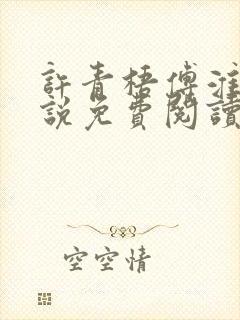 許青梧傅淮
說免費閱讀
空空情